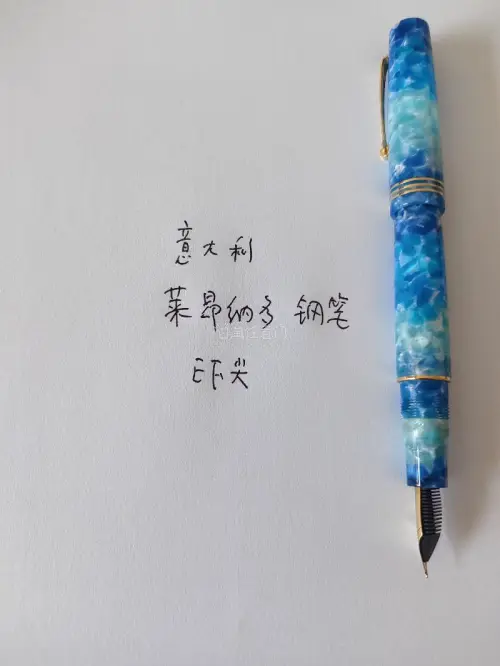 意大利
莱昂纳多 钢笔
EF尖